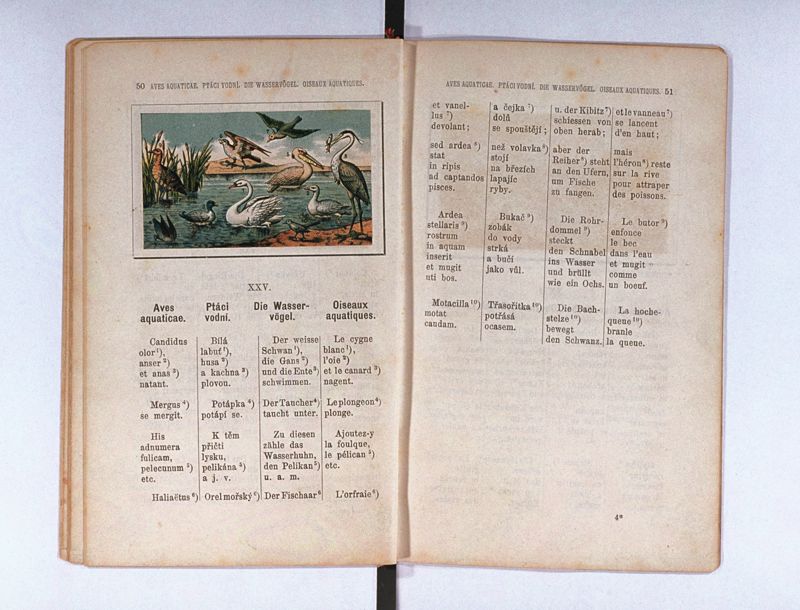 50 AVES AQUATICAE. PTÁCI VODNÍ. DIE WASSERVÖGEL. OISEAUX AQUATIQUES.
XXV.
Aves
aquaticae.
Candidus
olor¹),
anser²)
et anas³)
natant.
Mergus⁴)
se mergit.
His
adnumera
fulicam,
pelecunum⁵)
etc.
Haliaëtus⁶)
Ptáci
vodní.
Bílá
labuť¹),
husa²)
a kachna³)
plovou.
Potápka⁴)
potápí se.
K těm
přičti
lysku,
pelikána⁵)
a j. v.
Orel mořský⁶)
Die Wasser-
vögel.
Der weisse
Schwan¹),
die Gans²)
und die Ente³)
schwimmen.
Der Taucher⁴)
taucht unter.
Zu diesen
zähle das
Wasserhuhn,
den Pelikan⁵)
u. a. m.
Der Fischaar⁶
Oiseaux
aquatiques.
Le cygne
blanc¹),
l'oie²)
et le canard³)
nagent.
Le plongeon⁴)
plonge.
Ajoutez-y
la foulque,
le pélican⁵)
etc.
L'orfraie⁶)
AVES AQUATICAE. PTÁCI VODNÍ. DIE WASSERVÖGEL. OISEAUX AQUATIQUES. 51
et vanel-
lus⁷)
devolant;
sed ardea⁸)
stat
in ripis
ad captandos
pisces.
Ardea
stellaris⁹)
rostrum
in aquam
inserit
et mugit
uti bos.
Motacilla¹⁰)
motat
caudam.
a čejka⁷)
dolů
se spouštějí;
než volavka⁸)
stojí
na březích
lapajíc
ryby.
Bukač⁹)
zobák
do vody
strká
a bučí
jako vůl.
Třasořitka¹⁰)
potřásá
ocasem.
u. der Kibitz⁷)
schiessen von
oben herab;
aber der
Reiher⁸) steht
an den Ufern,
um Fische
zu fangen.
Die Rohr-
dommel⁹)
steckt
den Schnabel
ins Wasser
und brüllt
wie ein Ochs.
Die Bach-
stelze¹⁰)
bewegt
den Schwanz.
et le vanneau⁷)
se lancent
d'en haut;
mais
l'héron⁸) reste
sur la rive
pour attraper
des poissons.
Le butor⁹)
enfonce
le bec
dans l'eau
et mugit
comme
un boeuf.
La hoche-
queue¹⁰)
branle
la queue.
4*